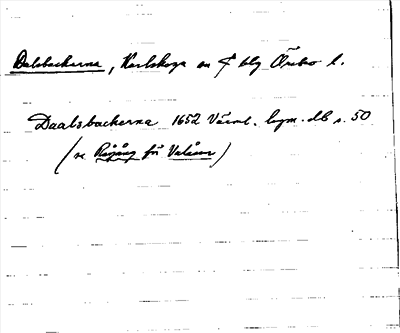 Dalsbackarna, Karlskoga sn f blg Örebro l.
Daalsbackerna 1652 Värml. lygn. db s. 50
(se Rågång för Valåsen)